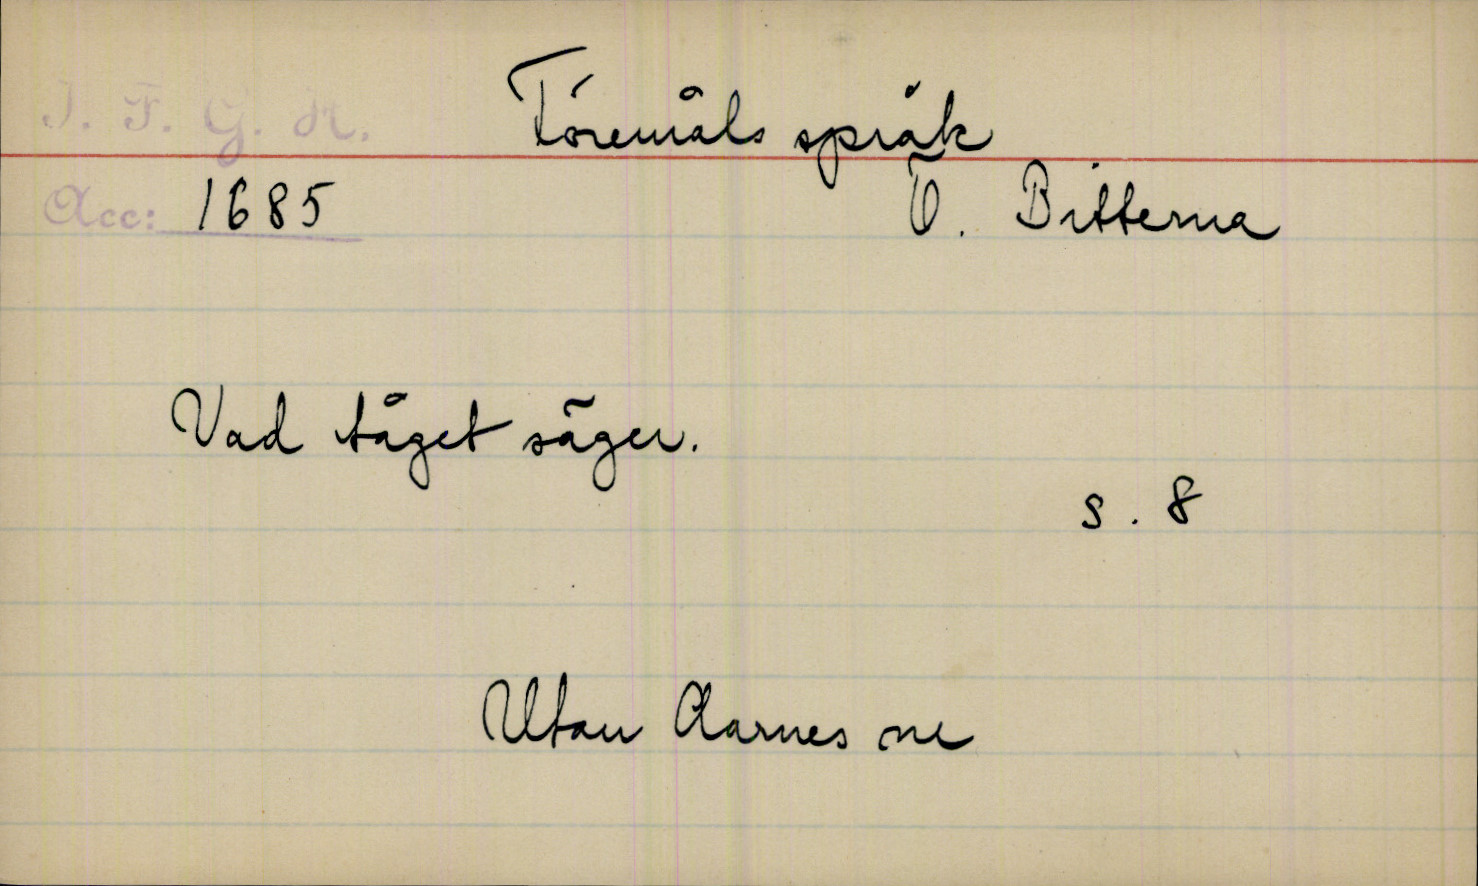 I. F. G. H.
Föremåls språk
Acc: 1685
V. Bitterna
Vad tåget säger.
s. 8
Utan Aarnes nr